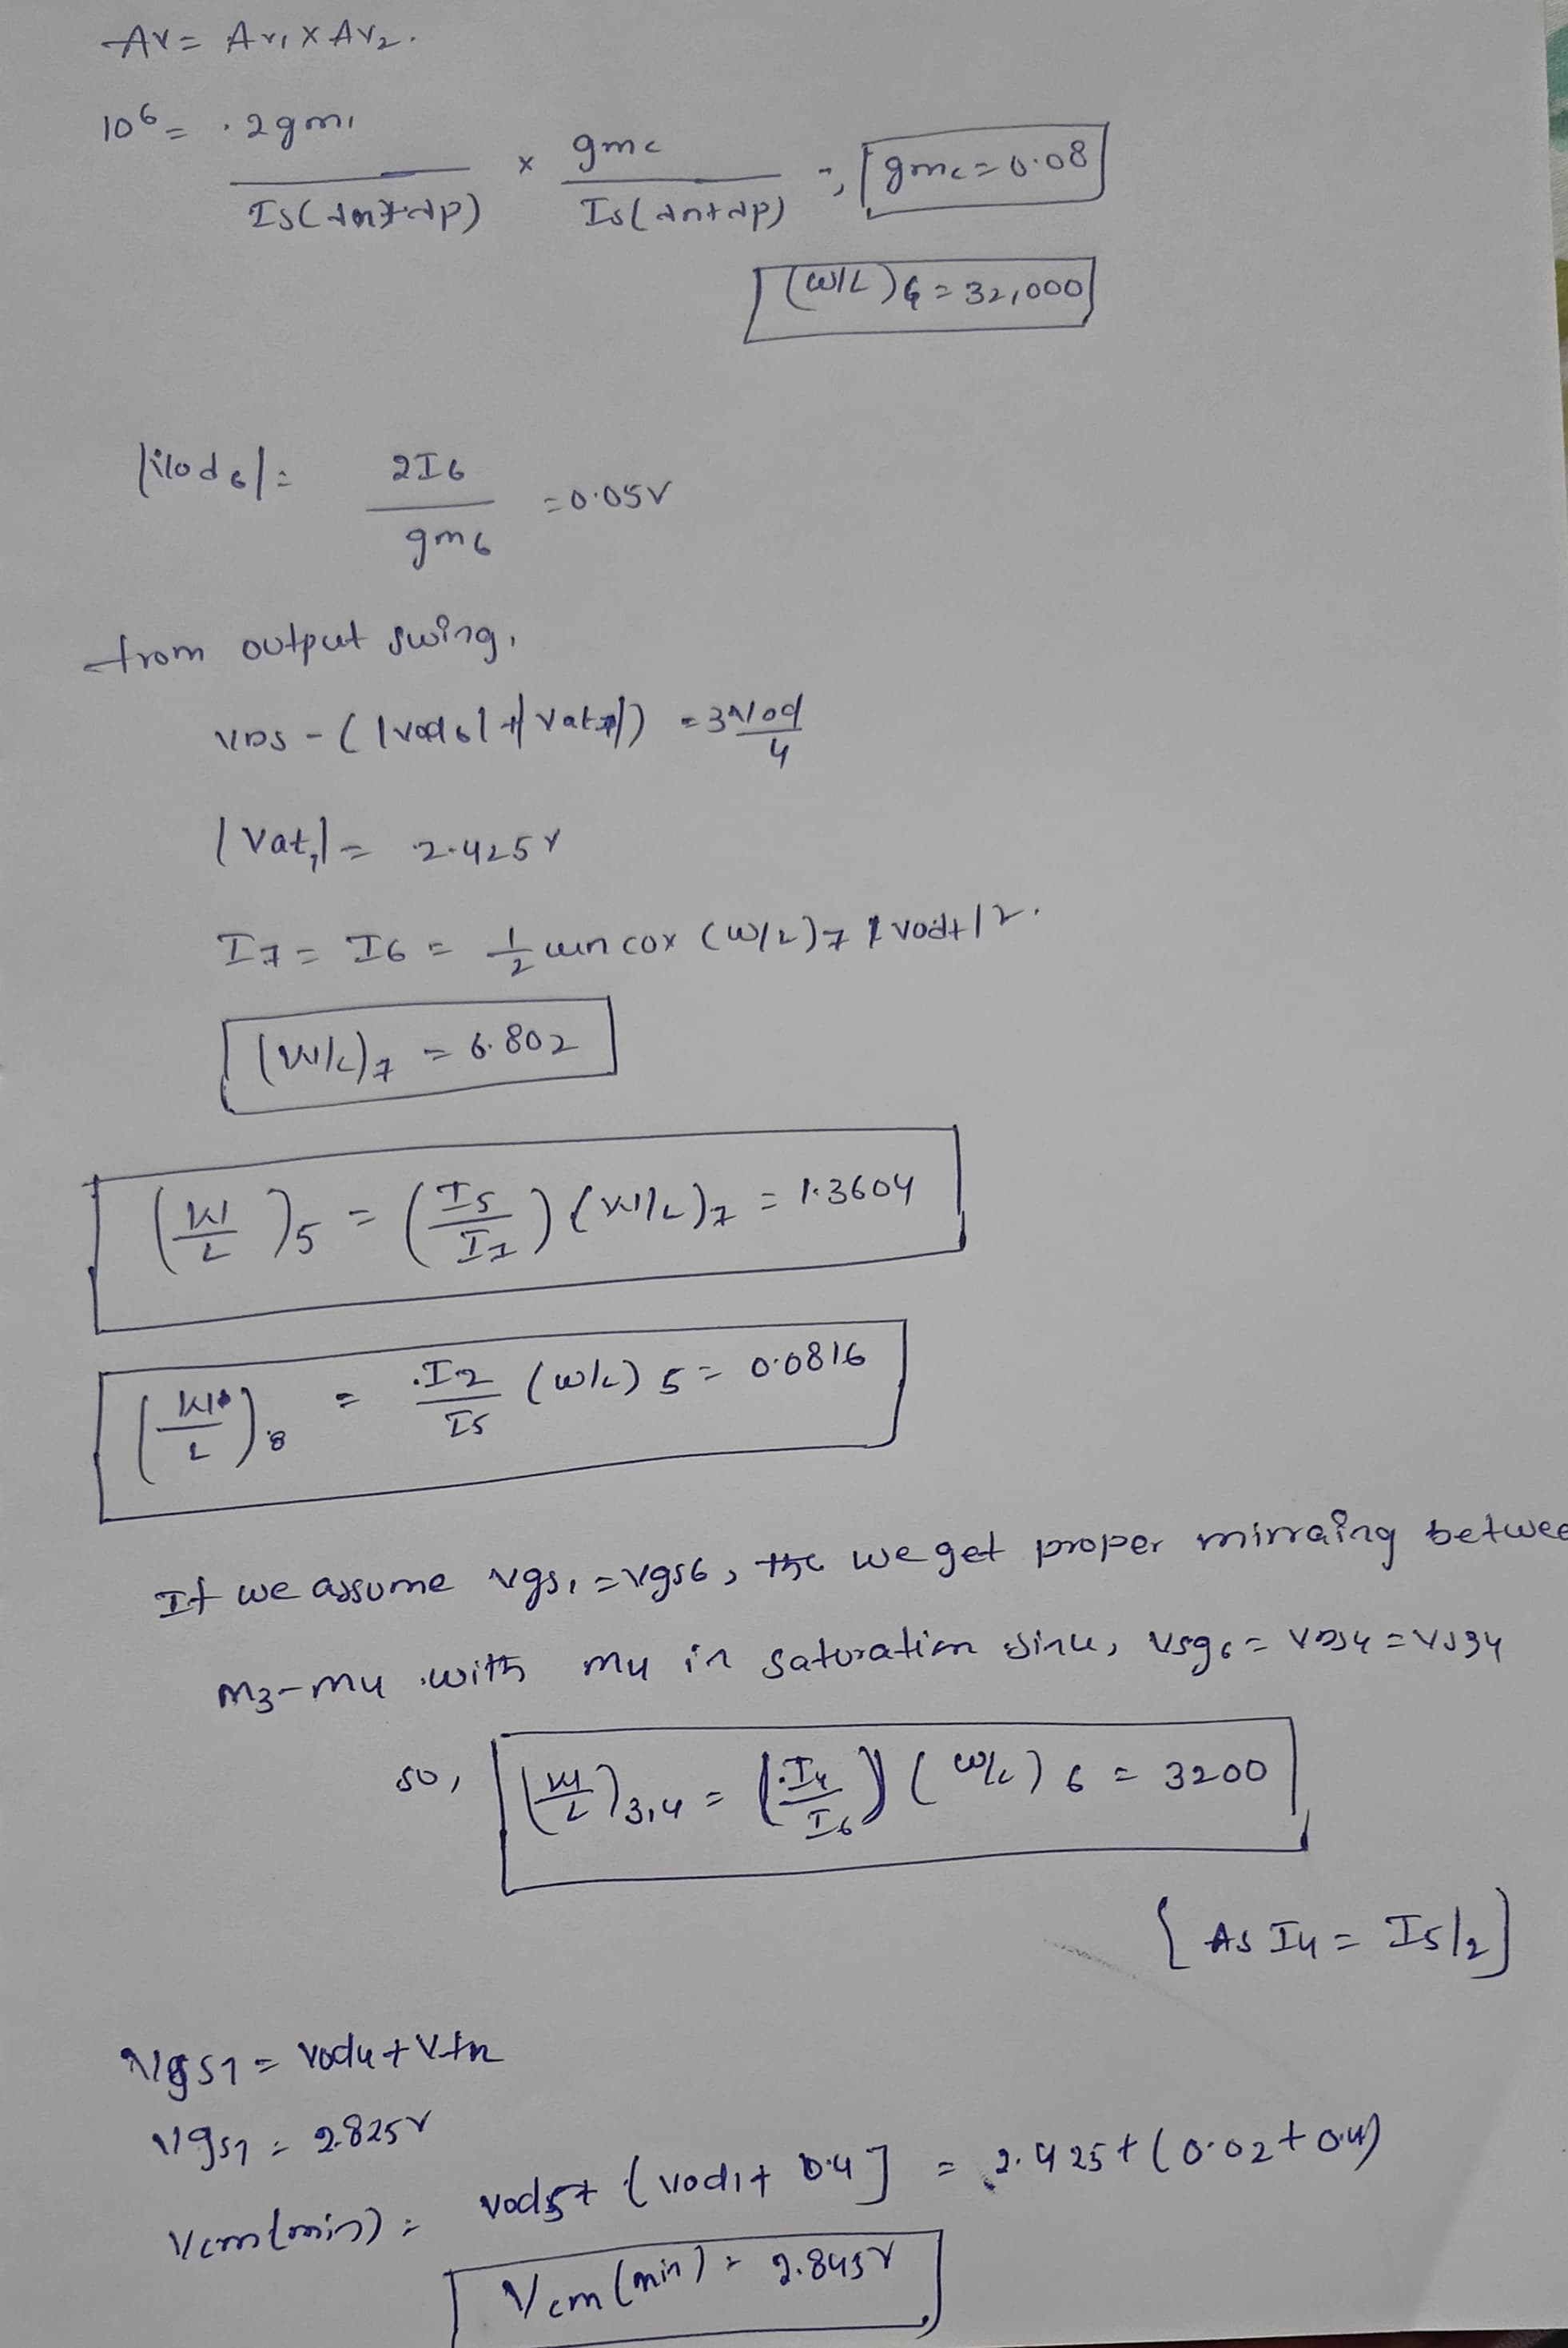 Av = Av1 x Av2.
10^6 = .2gm1 / Is(λn+λp) x gmc / Is(λn+λp) => gmc = 0.08
(W/L)6 = 32,000
|Vod6| = 2I6 / gm6 = 0.05V
from output swing,
VDS - (|Vod6| + |Vat7|) = 3Vod / 4
|Vat,| = 2.425V
I7 = I6 = 1/2 un cox (W/L)7 |Vod7|2.
(W/L)7 = 6.802
(W/L)5 = (I5/I7) (W/L)7 = 1.3604
(W/L)8 = I2/I5 (W/L)5 = 0.0816
If we assume vgs1 = vgs6, we get proper mirraing betwee
m3-m4 with m4 in saturation sinu, Vsg6 = VDS4 = VSg4
so, (W/L)3,4 = (I4/I6) (W/L)6 = 3200
{As I4 = I5/2]
Vgs7 = Vod4 + Vtn
Vgs7 = 2.825V
Vcm(min) = Vod5 + {Vod1 + 0.4] = 2.425 + (0.02 + 0.4)
Vcm(min) = 2.845V